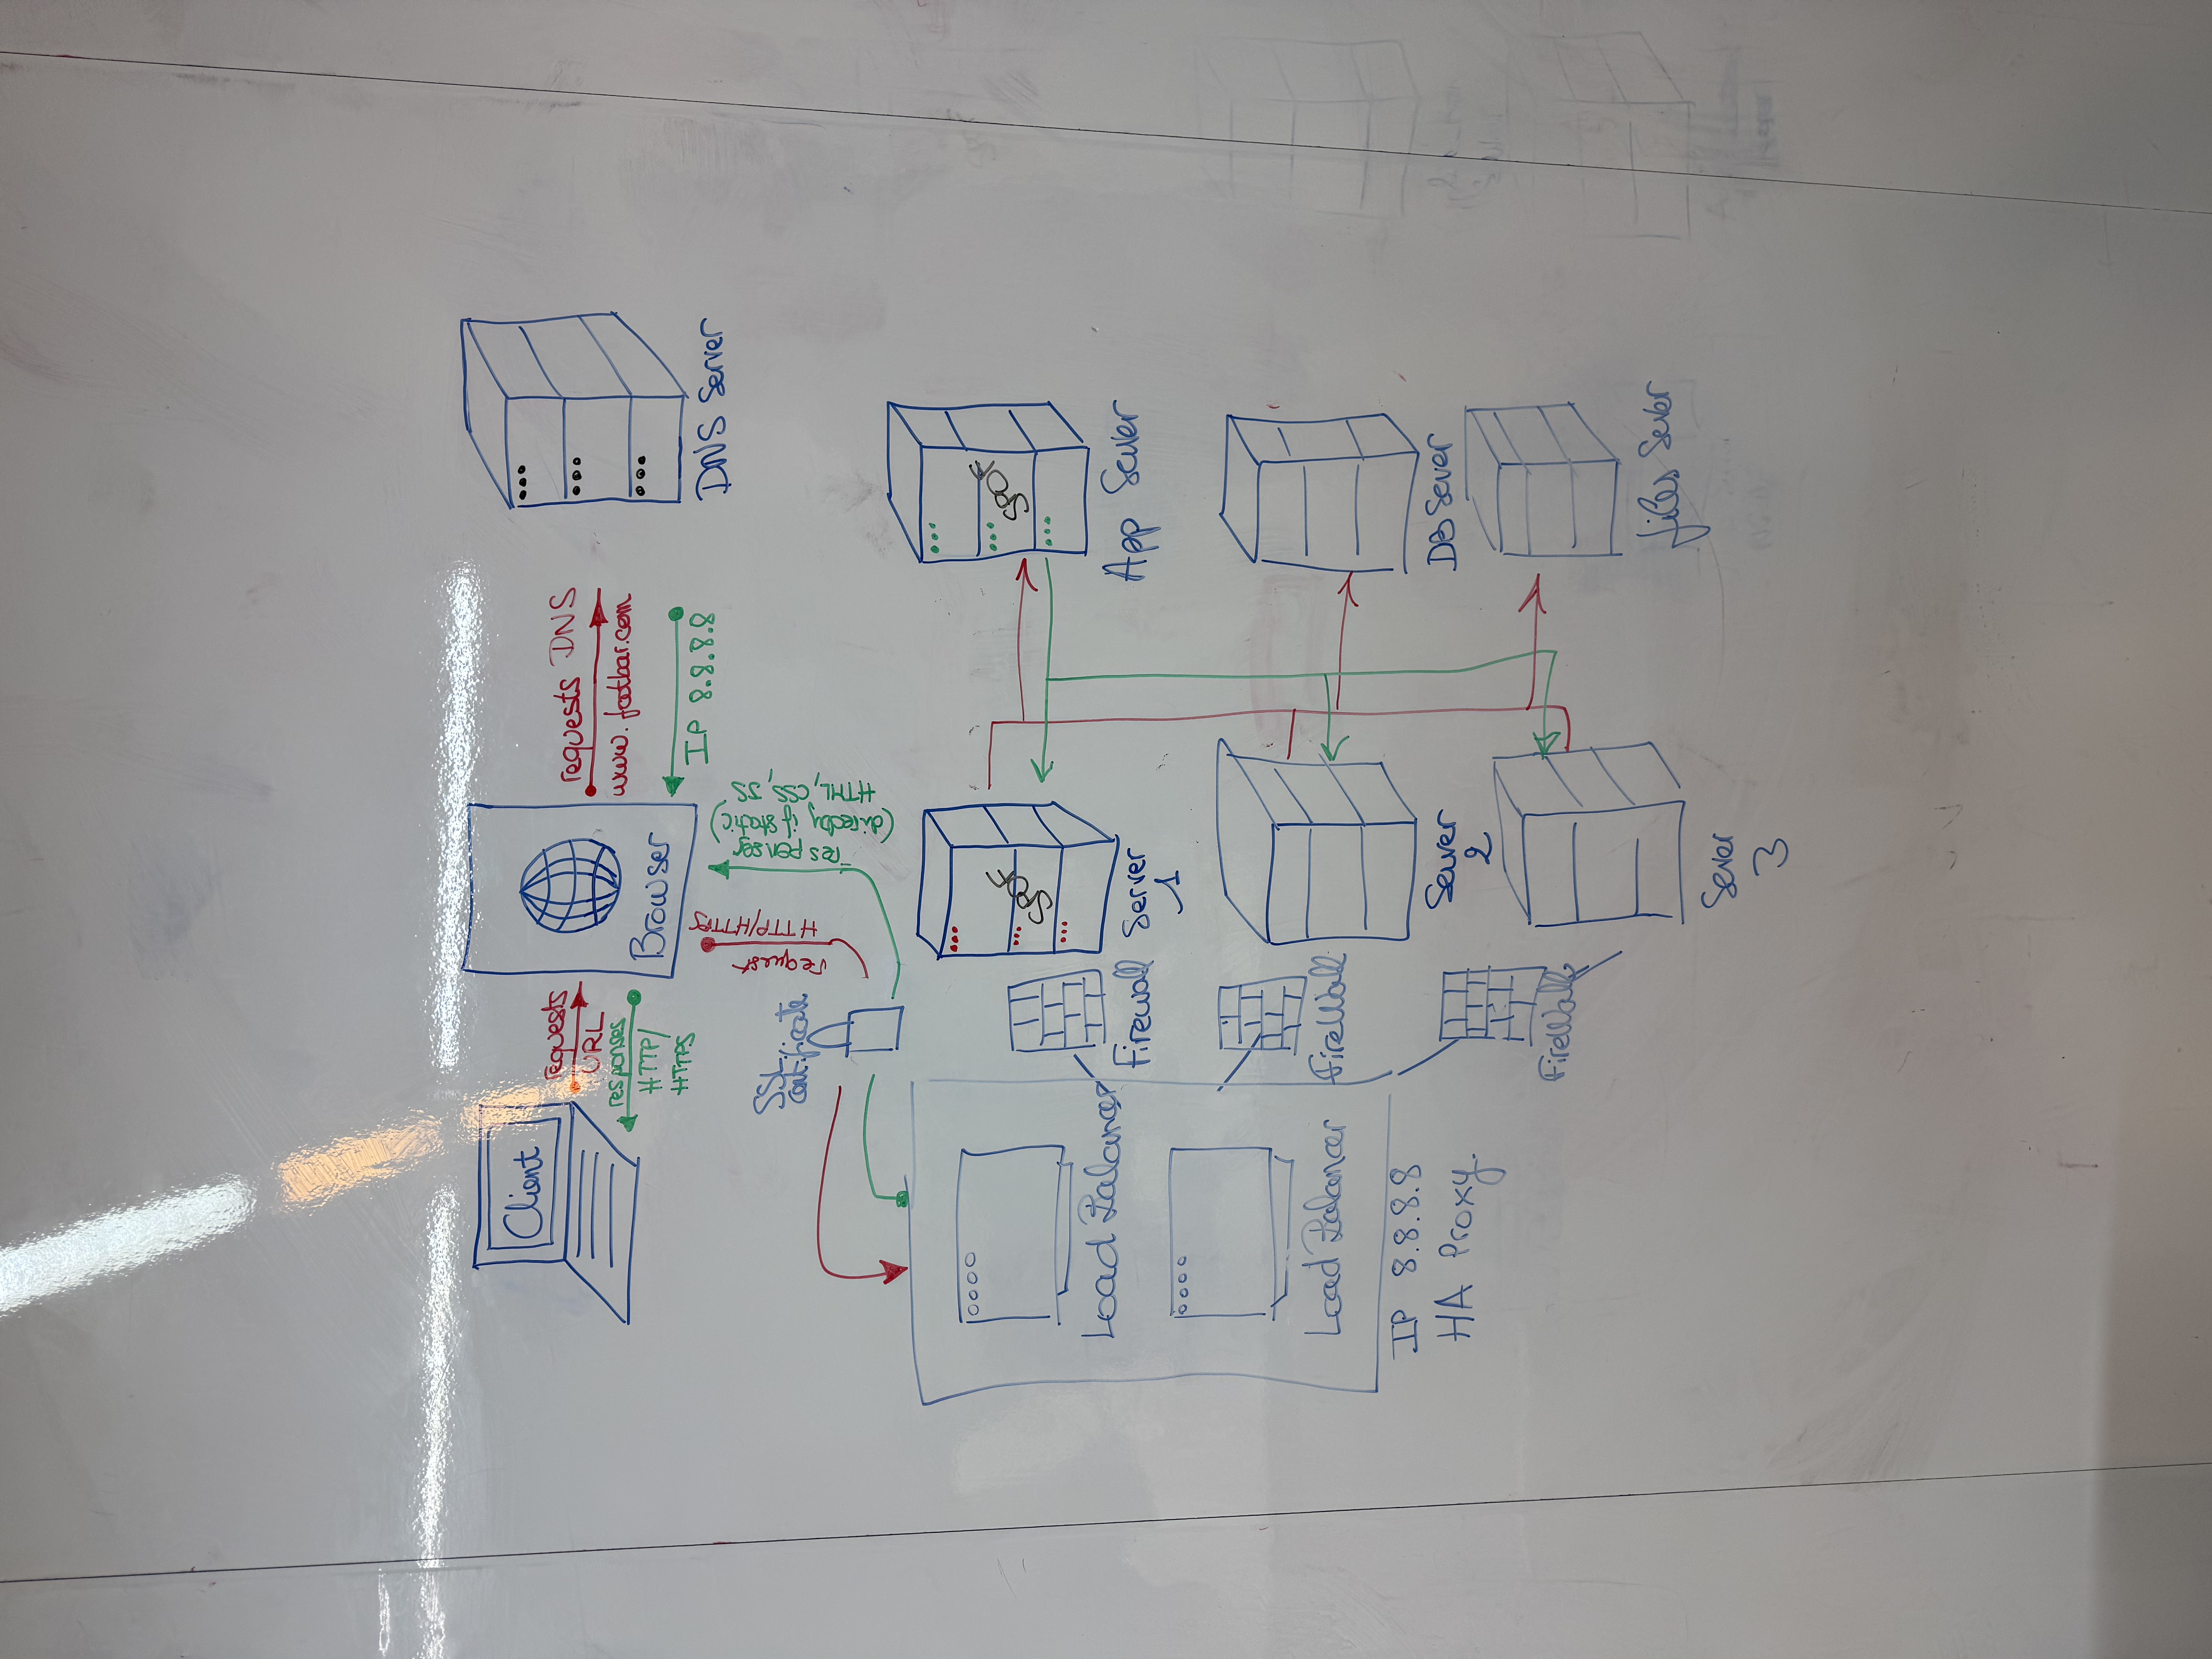 Client
requests
URL
responses
HTTP/
HTTPS
Browser
requests DNS
www.footbar.com
IP 8.8.8.8
DNS Server
SSL
certificate
request
HTTP/HTTPS
responses
(directly if static)
HTML, CSS, JS
Load Balancer
Load Balancer
IP 8.8.8.8
HA Proxy.
Firewall
FireWall
FireWall
SPOF
Server
1
Server
2
Sever
3
SPOF
App Server
DB Sever
files Sever